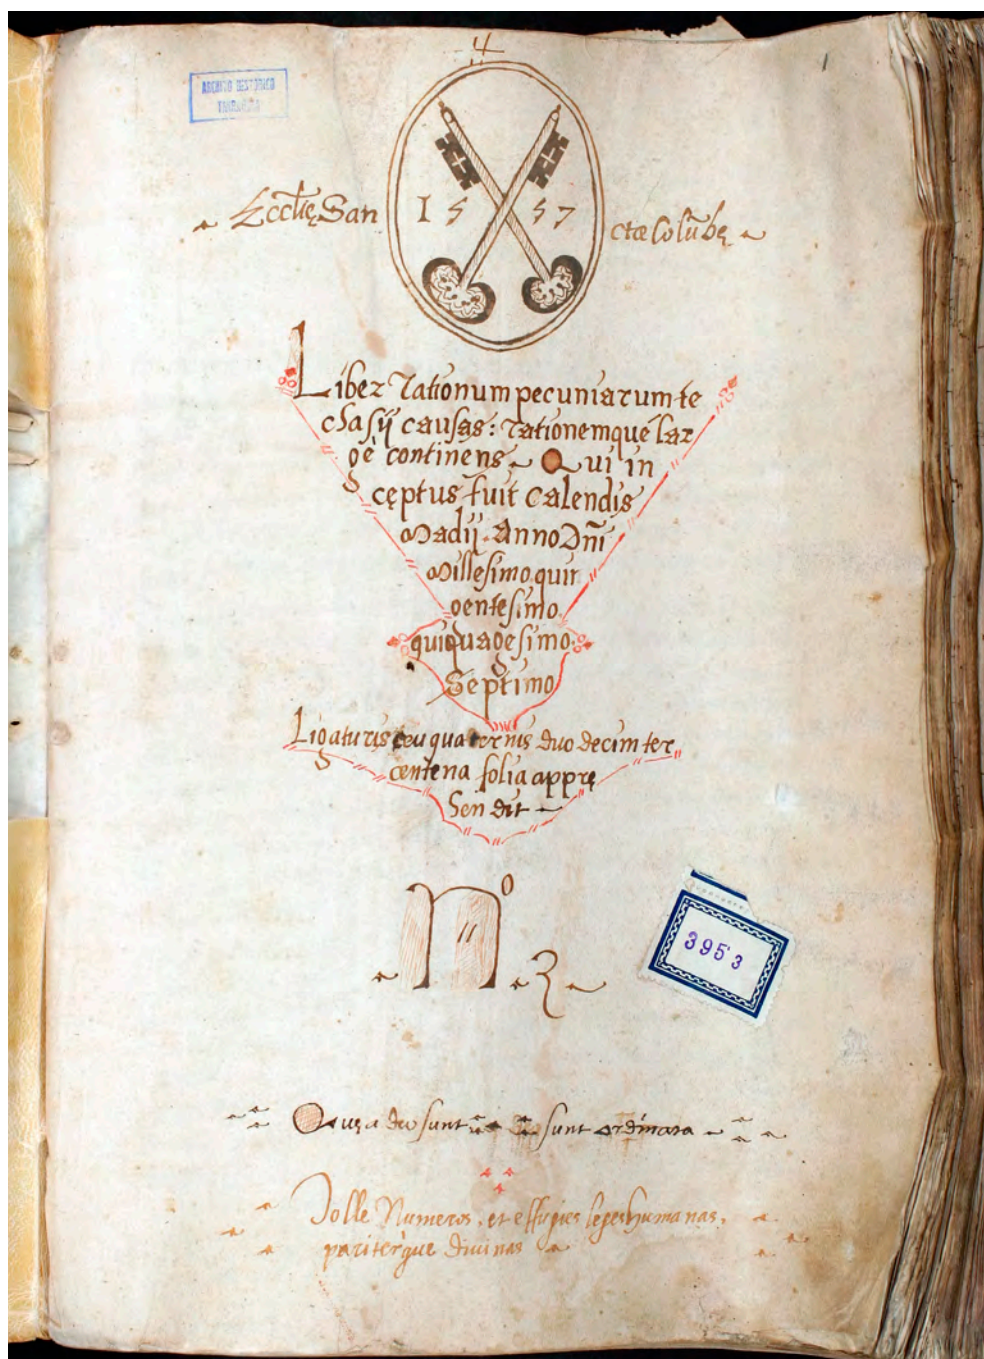 4
1
ARCHIVO HISTORICO
TARRASA
Eccl̃ię San
1557
ctæ Colũbę
Liber rationum pecuniarum te
chasij causas: rationemquè lar
gè continens Qui in
cęptus fuit Calendis
Madij Anno Dñi
Millesimo quin
gentesimo
quiquagesimo
Septimo
Ligaturis ceu quaternis duo decim ter
centena folia apprę
hendit
Nº 2
3953
Quę a deo sunt sunt ordinata
Tolle Numeros, et effugies leges humanas,
pariterque divinas